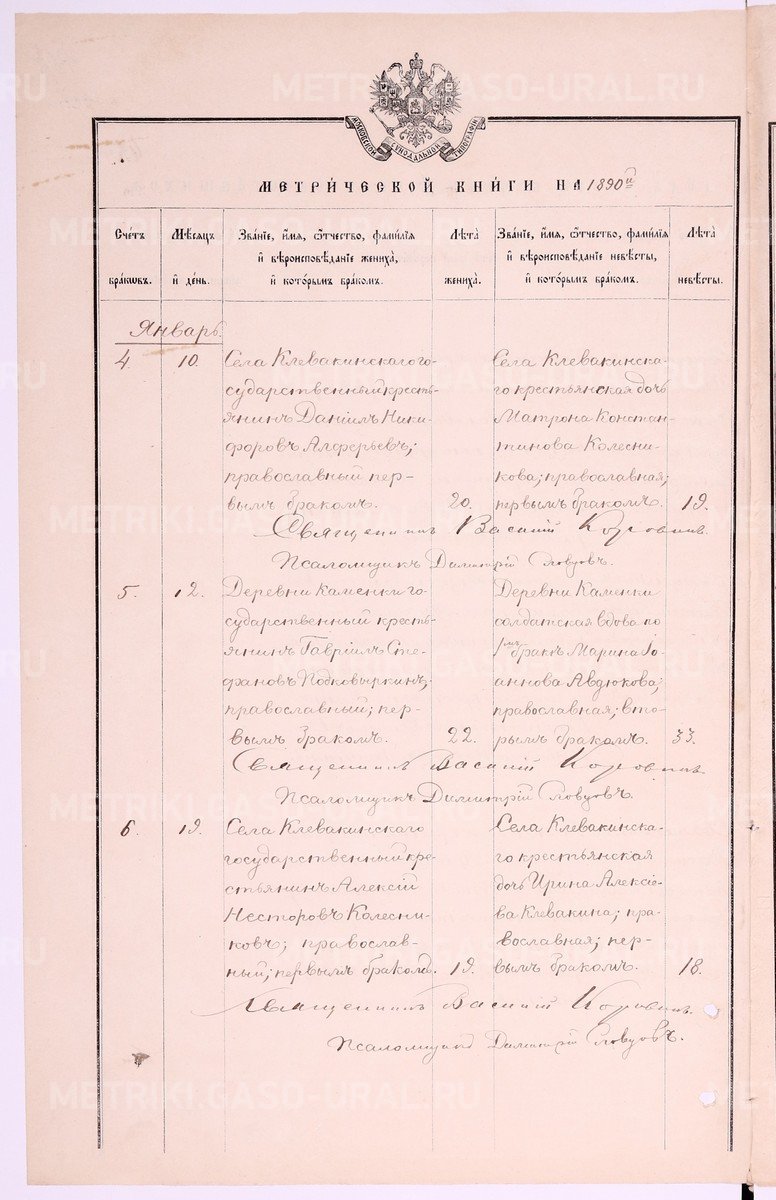 METRIKI.GASO-URAL.RU
МОСКОВСКОЙ СѴНОДАЛЬНОЙ ТИПОГРАФІИ
МЕТРИ́ЧЕСКОЙ КНИ́ГИ НА 1890й
Сче́тъ бра́кѡвъ.
Мѣ́сяцъ и҆ де́нь.
Зва́нїе, и҆́мя, ѻ҆́тчество, фами́лїя
и҆ вѣроисповѣ́данїе жениха̀,
и҆ кото́рымъ бра́комъ.
Лѣ́та жениха̀.
Зва́нїе, и҆́мя, ѻ҆́тчество, фами́лїя
и҆ вѣроисповѣ́данїе невѣ́сты,
и҆ кото́рымъ бра́комъ.
Лѣ́та невѣ́сты.
Январь
4.
10.
Села Клевакинскаго го-
сударственный кресть-
янинъ Даніилъ Ники-
форовъ Алферьевъ;
православный пер-
вымъ бракомъ.
20.
Села Клевакинска-
го крестьянская дочь
Матрона Констан-
тинова Колесни-
кова; православная;
первымъ бракомъ.
19.
Священникъ Василій Коровинъ.
Псаломщикъ Димитрій Словцовъ.
5.
12.
Деревни Каменки го-
сударственный кресть-
янинъ Гавріилъ Сте-
фановъ Подковыркинъ;
православный; пер-
вымъ бракомъ.
22.
Деревни Каменки
солдатская вдова по
1мъ бракѣ Марина Іо-
аннова Авдюкова;
православная; вто-
рымъ бракомъ.
33.
Священникъ Василій Коровинъ.
Псаломщикъ Димитрій Словцовъ.
6.
19.
Села Клевакинскаго
государственный кре-
стьянинъ Алексій
Несторовъ Колесни-
ковъ; православ-
ный; первымъ бракомъ.
19.
Села Клевакинска-
го крестьянская
дочь Ирина Алексіе-
ва Клевакина; пра-
вославная; пер-
вымъ бракомъ.
18.
Священникъ Василій Коровинъ.
Псаломщикъ Димитрій Словцовъ.
METRIKI.GASO-URAL.RU